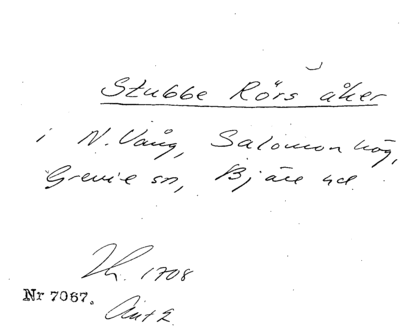 Stubbe Rörs åker
i N. Vång, Salomonhög,
Grevie sn, Bjäre hd.
Lh. 1708
Nr 7067.
Ant 2